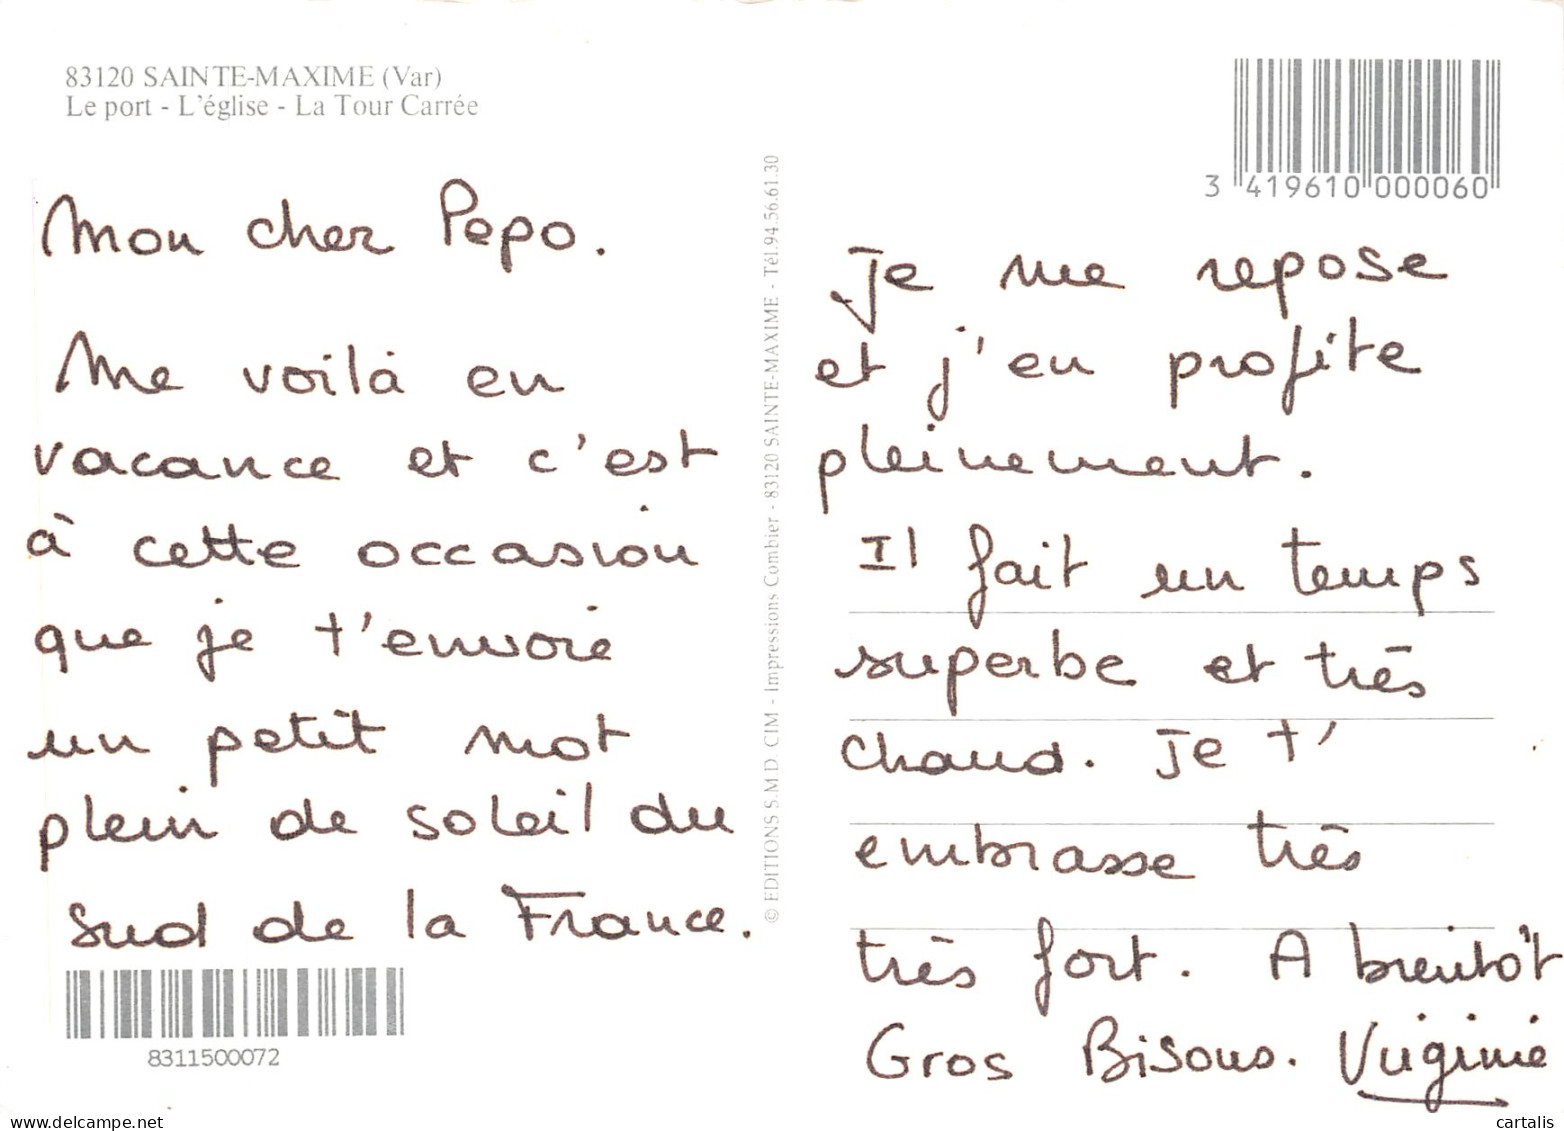 83120 SAINTE-MAXIME (Var)
Le port - L'église - La Tour Carrée
Mon cher Pepo.
Me voilà en
vacance et c'est
à cette occasion
que je t'envoie
un petit mot
plein de soleil du
sud de la France.
8311500072
© EDITIONS S.M.D. CIM - Impressions Combier - 83120 SAINTE-MAXIME - Tél.94.56.61.30
3 419610 000060
Je me repose
et j'en profite
pleinement.
Il fait un temps
superbe et très
chaud. Je t'
embrasse très
très fort. A bientôt
Gros Bisous. Virginie
delcampe.net
cartalis